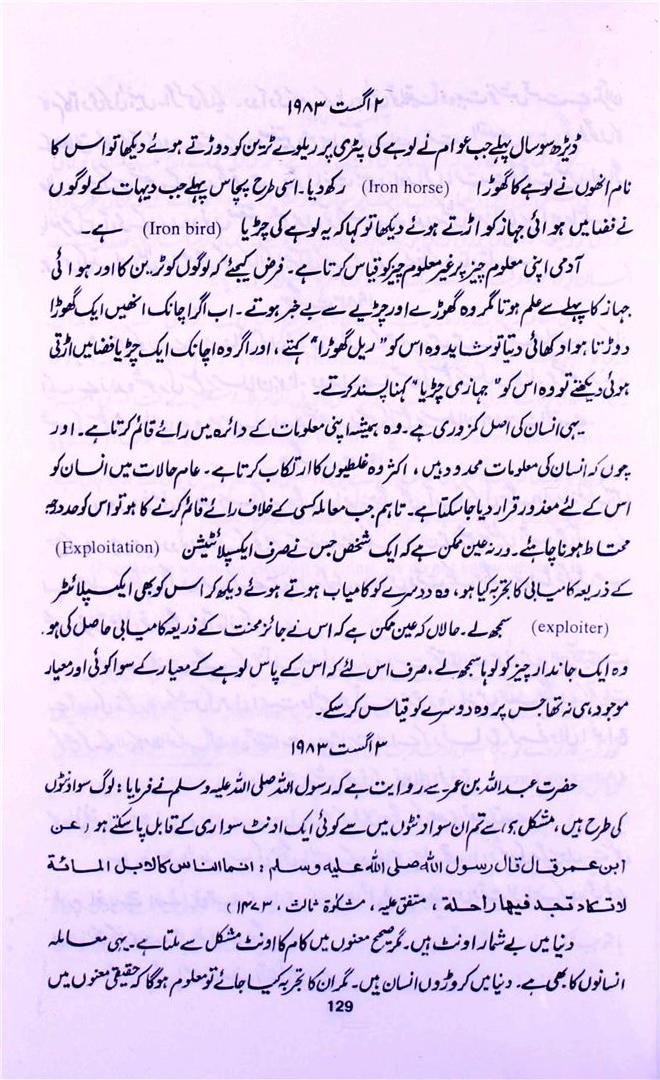 ۲ اگست ۱۹۸۳
ڈیڑھ سو سال پہلے جب عوام نے لوہے کی پٹری پر ریلوے ٹرین کو دوڑتے ہوئے دیکھا تو اس کا
نام انھوں نے لوہے کا گھوڑا (Iron horse) رکھ دیا۔ اسی طرح پچاس پہلے جب دیہات کے لوگوں
نے فضا میں ہوائی جہاز کو اڑتے ہوئے دیکھا تو کہا کہ یہ لوہے کی چڑیا (Iron bird) ہے۔
آدمی اپنی معلوم چیز پر غیر معلوم چیز کو قیاس کرتا ہے۔ فرض کیجئے کہ لوگوں کو ٹرین کا اور ہوائی
جہاز کا پہلے سے علم ہوتا مگر وہ گھوڑے اور چڑیے سے بے خبر ہوتے۔ اب اگر اچانک انھیں ایک گھوڑا
دوڑتا ہوا دکھائی دیتا تو شاید وہ اس کو "ریل گھوڑا" کہتے، اور اگر وہ اچانک ایک چڑیا فضا میں اڑتی
ہوئی دیکھتے تو وہ اس کو "جہازی چڑیا" کہنا پسند کرتے۔
یہی انسان کی اصل کمزوری ہے۔ وہ ہمیشہ اپنی معلومات کے دائرہ میں رائے قائم کرتا ہے۔ اور
چوں کہ انسان کی معلومات محدود ہیں، اکثر وہ غلطیوں کا ارتکاب کرتا ہے۔ عام حالات میں انسان کو
اس کے لئے معذور قرار دیا جا سکتا ہے۔ تاہم جب معاملہ کسی کے خلاف رائے قائم کرنے کا ہو تو اس کو حد درجہ
محتاط ہونا چاہئے۔ ورنہ عین ممکن ہے کہ ایک شخص جس نے صرف ایکسپلائٹیشن (Exploitation)
کے ذریعہ کامیابی کا تجربہ کیا ہو، وہ دوسرے کو کامیاب ہوتے ہوئے دیکھ کر اس کو بھی ایکسپلائٹر
(exploiter) سمجھ لے۔ حالاں کہ عین ممکن ہے کہ اس نے جائز محنت کے ذریعہ کامیابی حاصل کی ہو۔
وہ ایک جاندار چیز کو لوہا سمجھ لے، صرف اس لئے کہ اس کے پاس لوہے کے معیار کے سوا کوئی اور معیار
موجود ہی نہ تھا جس پر وہ دوسرے کو قیاس کر سکے۔
۳ اگست ۱۹۸۳
حضرت عبداللہ بن عمر سے روایت ہے کہ رسول اللہ صلی اللہ علیہ وسلم نے فرمایا: لوگ سو اونٹوں
کی طرح ہیں، مشکل ہی سے تم ان سو اونٹوں میں سے کوئی ایک اونٹ سواری کے قابل پا سکتے ہو (عن
ابن عمر قال قال رسول الله صلى الله عليه وسلم: انما الناس كالابل المائة
لا تكاد تجد فيها راحلة، متفق علیہ، مشکوٰۃ ثالث، ۱۴۷۳)
دنیا میں بے شمار اونٹ ہیں۔ مگر صحیح معنوں میں کام کا اونٹ مشکل سے ملتا ہے۔ یہی معاملہ
انسانوں کا بھی ہے۔ دنیا میں کروڑوں انسان ہیں۔ مگر ان کا تجربہ کیا جائے تو معلوم ہوگا کہ حقیقی معنوں میں
129